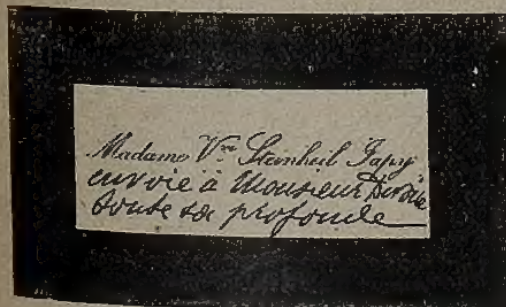 Madame Vve Steinheil Japy
envoie à Monsieur
toute sa profonde